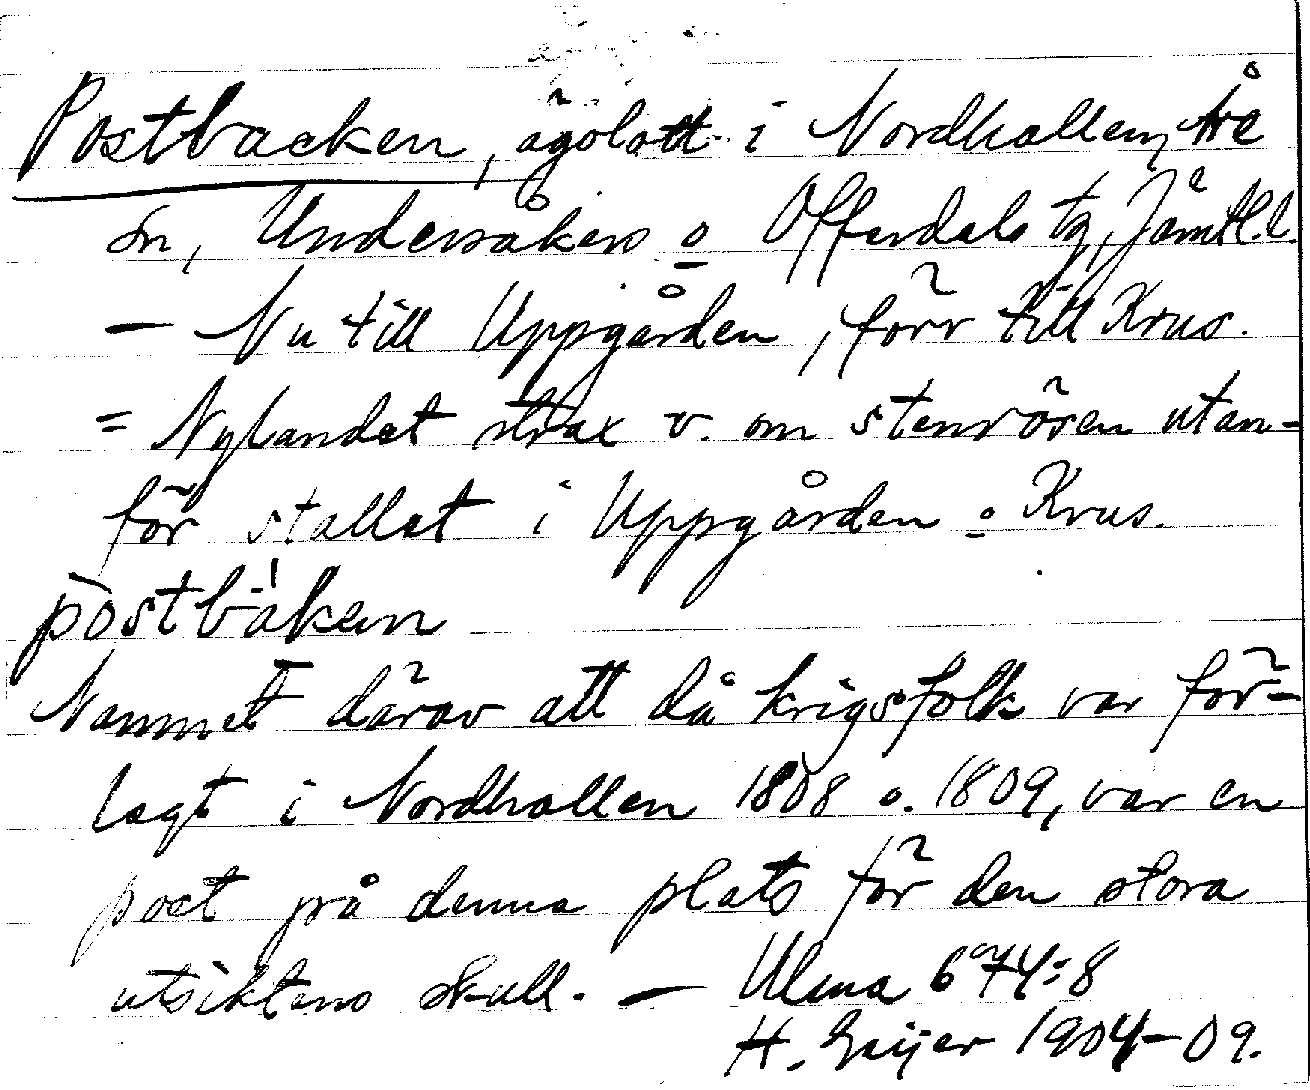 Postbacken, ägolott i Nordhallen, Åre
sn, Undersåkers o Offerdals tg, Jämtl. l.
— Nu till Uppgården, förr till Krus.
= Nylandet strax v. om stenrösen utan-
för stallet i Uppgården o Krus.
postbàken
Namnet därav att då krigsfolk var för-
lagt i Nordhallen 1808 o. 1809, var en
post på denna plats för den stora
utsiktens skull. — Ulma 674:8
H. Geijer 1904-09.